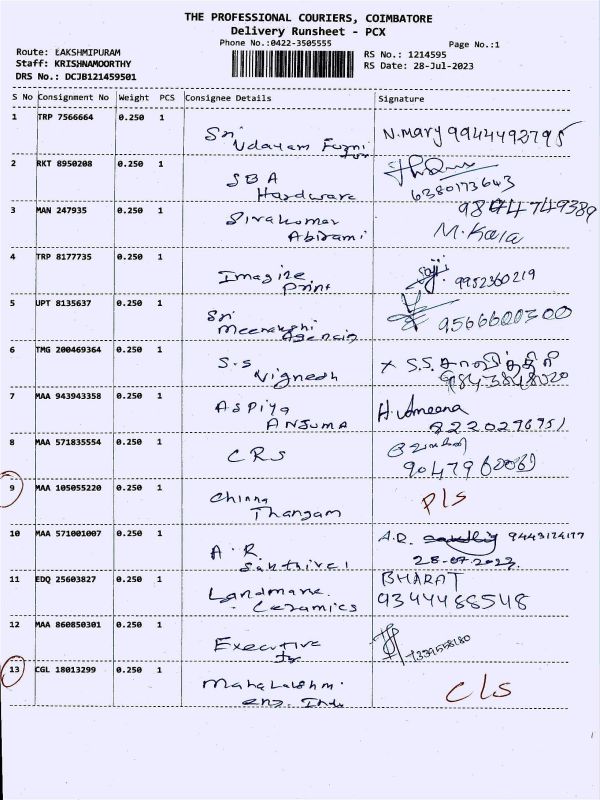 THE PROFESSIONAL COURIERS, COIMBATORE
Delivery Runsheet - PCX
Phone No.:0422-3505555
Page No.:1
Route: LAKSHMIPURAM
Staff: KRISHNAMOORTHY
DRS No.: DCJB121459501
RS No.: 1214595
RS Date: 28-Jul-2023
S No Consignment No Weight PCS Consignee Details Signature
1 TRP 7566664 0.250 1
Sri
Udayam Furni
N.Mary 9944492795
2 RKT 8950208 0.250 1
SBA
Hardware
6380173643
3 MAN 247935 0.250 1
Sivakumar
Abirami
M. Kala
4 TRP 8177735 0.250 1
Imagine
Print
9952360219
5 UPT 8135637 0.250 1
Sri
Meenakshi
Agencies
9566600300
6 TMG 200469364 0.250 1
S.S
Vignesh
x S.S. சாவித்திரி
9843848020
7 MAA 943943358 0.250 1
Aspiya
Anjuma
H. Ameena
8220276951
8 MAA 571835554 0.250 1
CRS
9 MAA 105055220 0.250 1
Chinna
Thangam
Pls
10 MAA 571001007 0.250 1
A.R.
Sakthivel
A.R. 9443124177
28-07-2023
11 EDQ 25603827 0.250 1
Landmark
Ceramics
BHARAT
9344488548
12 MAA 860850301 0.250 1
Executive
13 CGL 18013299 0.250 1
Mahalakshmi
eng. Indu
CLS